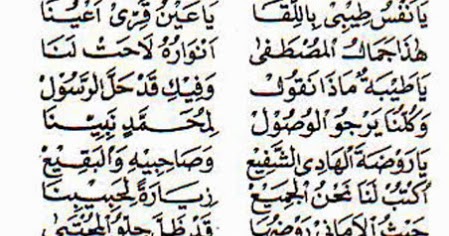 يَا نَفْسُ طِيْبِيْ بِاللِّقَا يَا عَيْنُ قَرِّيْ اَعْيُنَا
هٰذَا جَمَالُ الْمُصْطَفٰى اَنْوَارُهُ لَاحَتْ لَنَا
يَا طَيْبَةُ مَاذَا نَقُوْلُ وَفِيْكِ قَدْ حَلَّ الرَّسُوْلُ
وَكُلُّنَا يَرْجُو الْوُصُوْلَ لِمُحَمَّدٍ نَبِيِّنَا
يَا رَوْضَةَ الْهَادِى الشَّفِيْعِ وَصَاحِبَيْهِ وَالْبَقِيْعِ
اُكْتُبْ لَنَا نَحْنُ الْجَمِيْعِ زِيَارَةً لِحَبِيْبِنَا
حَيْثُ الْاَمَانِى رَوْضُهَا قَدْ ظَلَّ حُلْوَ الْمُجْتَنٰى